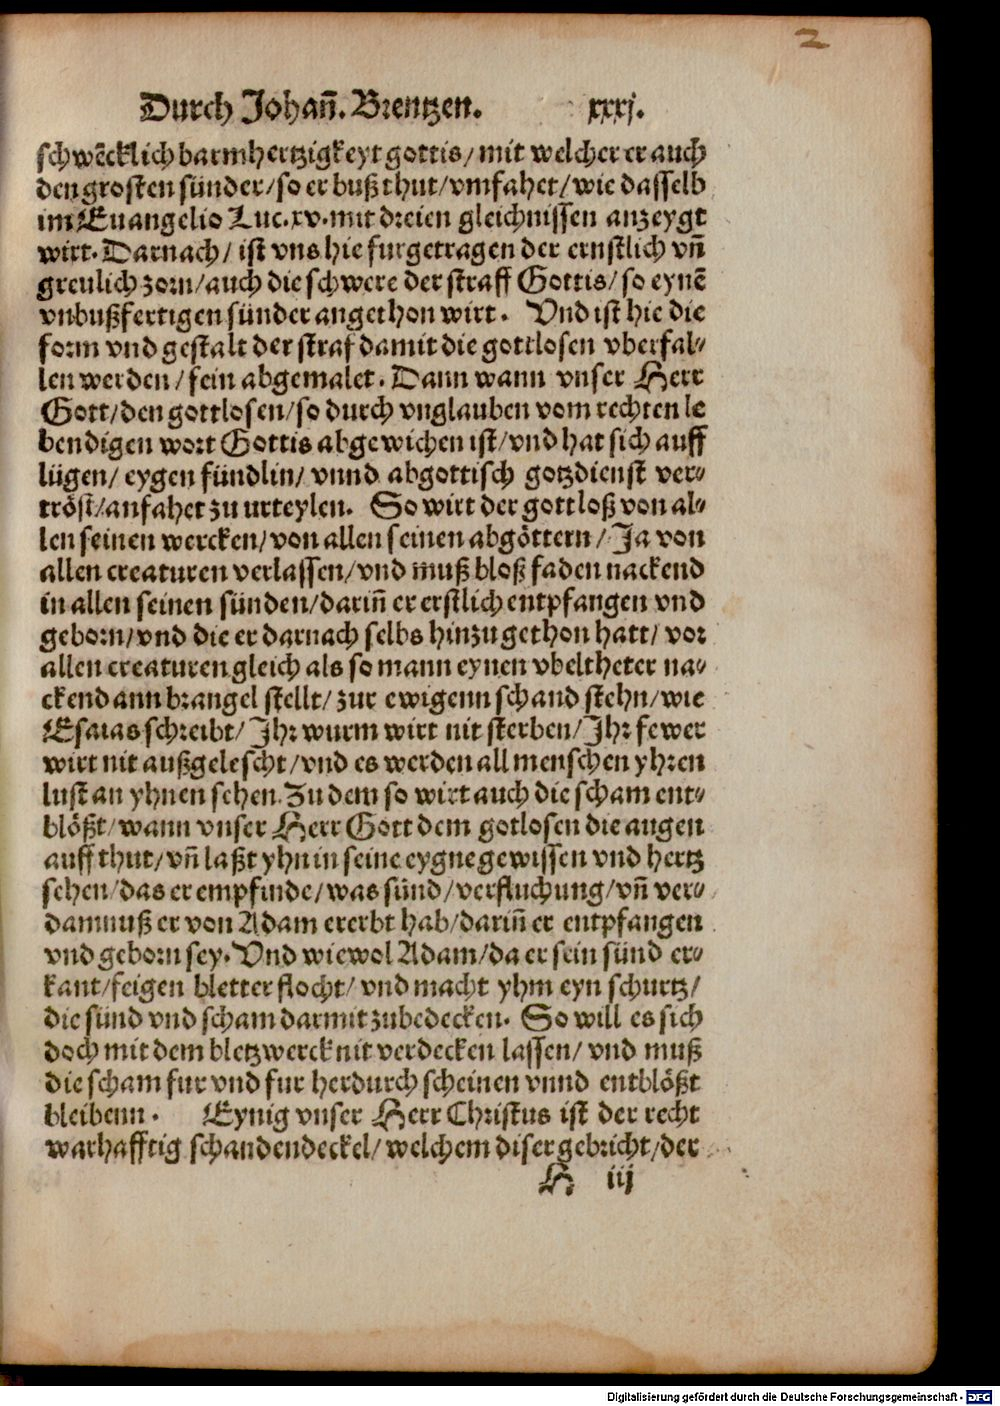 2
Durch Johañ. Brentzen. xxxj.
schwẽcklich barmhertzigkeyt gottis/ mit welcher er auch
den grosten sünder/ so er buß thut/ vmfahet/ wie dasselb
im Euangelio Luc. xv. mit dreien gleichnissen anzeygt
wirt. Darnach/ ist vns hie furgetragen der ernstlich vñ
greulich zorn/ auch die schwere der straff Gottis/ so eynẽ
vnbußfertigen sünder angethon wirt. Vnd ist hie die
form vnd gestalt der straf damit die gottlosen vberfal⸗
len werden/ fein abgemalet. Dann wann vnser Herr
Gott/ den gottlosen/ so durch vnglauben vom rechten le
bendigen wort Gottis abgewichen ist/ vnd hat sich auff
lügen/ eygen fündlin/ vnnd abgottisch gotzdienst ver⸗
tröst/ anfahet zu urteylen. So wirt der gottloß von al⸗
len seinen wercken/ von allen seinen abgöttern/ Ja von
allen creaturen verlassen/ vnd muß bloß faden nackend
in allen seinen sünden/ dariñ er erstlich entpfangen vnd
geborn/ vnd die er darnach selbs hinzu gethon hatt/ vor
allen creaturen gleich als so mann eynen vbeltheter na⸗
ckend ann brangel stellt/ zur ewigenn schand stehn/ wie
Esaias schreibt/ Jhr wurm wirt nit sterben/ Jhr fewer
wirt nit außgelescht/ vnd es werden all menschen yhren
lust an yhnen sehen. Zu dem so wirt auch die scham ent⸗
blößt/ wann vnser Herr Gott dem gotlosen die augen
auff thut/ vñ laßt yhn in seine eygne gewissen vnd hertz
sehen/ das er empfinde/ was sünd/ verfluchung/ vñ ver⸗
damnuß er von Adam ererbt hab/ dariñ er entpfangen
vnd geborn sey. Vnd wiewol Adam/ da er sein sünd er⸗
kant/ feigen bletter flocht/ vnd macht yhm eyn schurtz/
die sünd vnd scham darmit zubedecken. So will es sich
doch mit dem bletzwerck nit verdecken lassen/ vnd muß
die scham fur vnd fur herdurch scheinen vnnd entblößt
bleibenn. Eynig vnser Herr Christus ist der recht
warhafftig schandendeckel/ welchem diser gebricht/ der
H iij
Digitalisierung gefördert durch die Deutsche Forschungsgemeinschaft - DFG